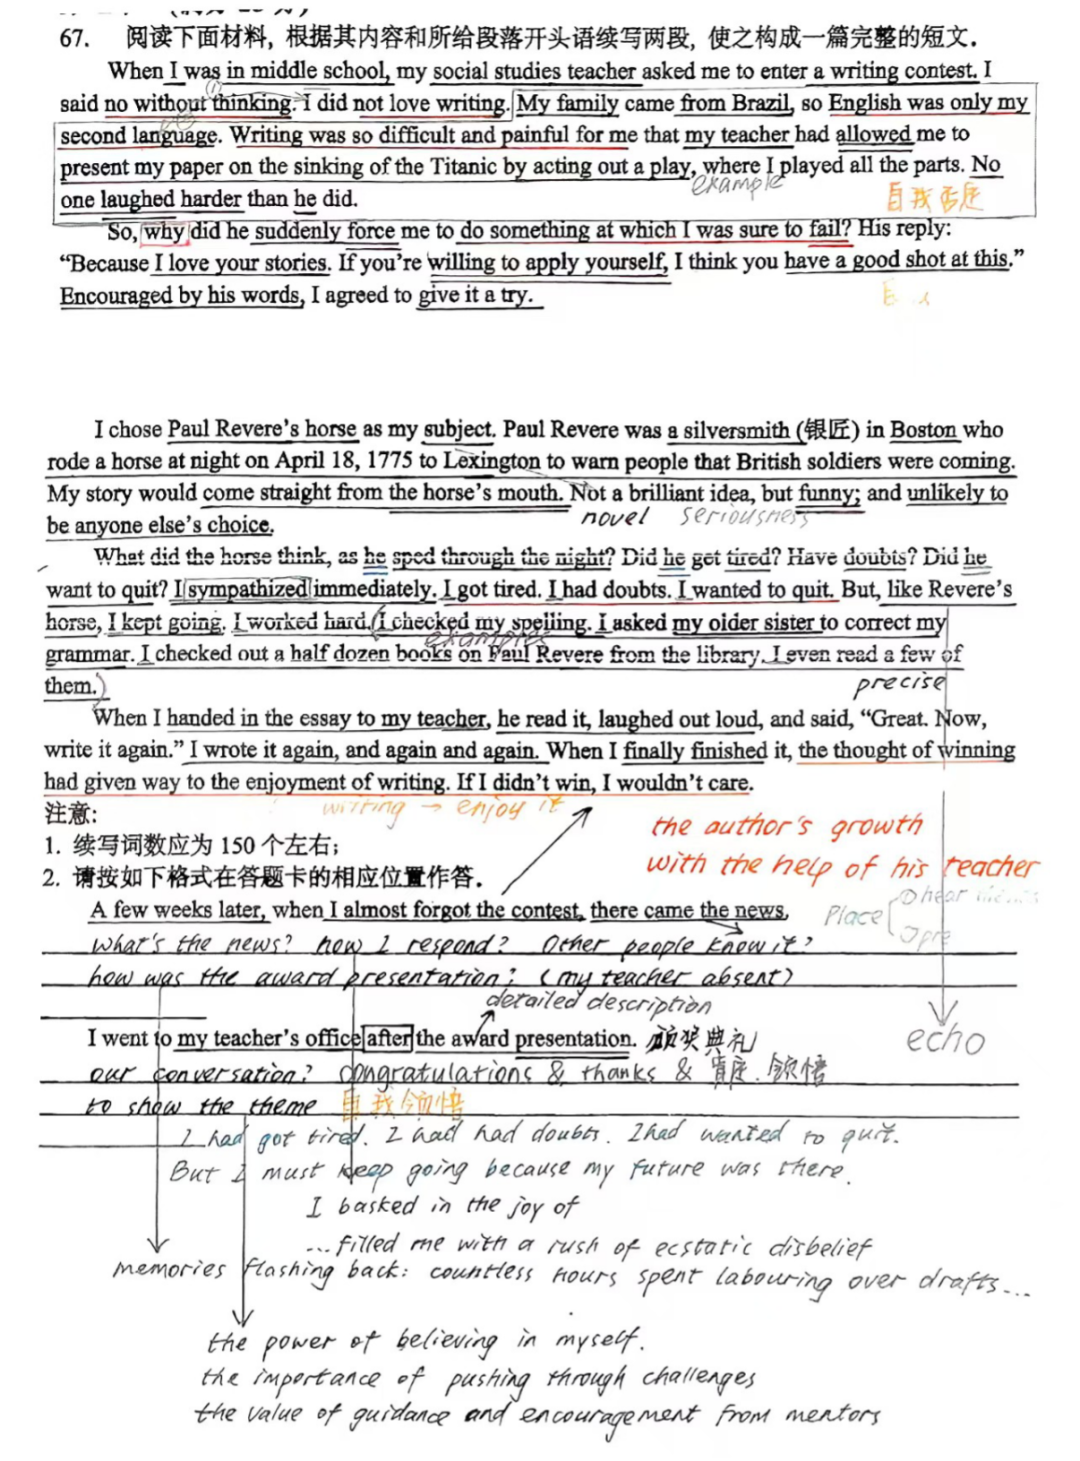 67. 阅读下面材料, 根据其内容和所给段落开头语续写两段, 使之构成一篇完整的短文.
When I was in middle school, my social studies teacher asked me to enter a writing contest. I
said no without thinking. I did not love writing. My family came from Brazil, so English was only my
second language. Writing was so difficult and painful for me that my teacher had allowed me to
present my paper on the sinking of the Titanic by acting out a play, where I played all the parts. No
example
one laughed harder than he did.
自我否定
So, why did he suddenly force me to do something at which I was sure to fail? His reply:
“Because I love your stories. If you’re willing to apply yourself, I think you have a good shot at this.”
Encouraged by his words, I agreed to give it a try.
I chose Paul Revere’s horse as my subject. Paul Revere was a silversmith (银匠) in Boston who
rode a horse at night on April 18, 1775 to Lexington to warn people that British soldiers were coming.
My story would come straight from the horse’s mouth. Not a brilliant idea, but funny; and unlikely to
novel seriousness
be anyone else’s choice.
What did the horse think, as he sped through the night? Did he get tired? Have doubts? Did he
want to quit? I sympathized immediately. I got tired. I had doubts. I wanted to quit. But, like Revere’s
horse, I kept going. I worked hard. I checked my spelling. I asked my older sister to correct my
examples
grammar. I checked out a half dozen books on Paul Revere from the library. I even read a few of
them.
precise
When I handed in the essay to my teacher, he read it, laughed out loud, and said, “Great. Now,
write it again.” I wrote it again, and again and again. When I finally finished it, the thought of winning
had given way to the enjoyment of writing. If I didn’t win, I wouldn’t care.
writing → enjoy it
注意:
1. 续写词数应为 150 个左右;
the author's growth
with the help of his teacher
2. 请按如下格式在答题卡的相应位置作答.
A few weeks later, when I almost forgot the contest, there came the news.
Place ① hear
what's the news? how I respond? Other people know it?
how was the award presentation? (my teacher absent)
detailed description
I went to my teacher’s office after the award presentation. 颁奖典礼
echo
our conversation? congratulations & thanks & 肯定. 领悟
to show the theme 自我领悟
I had got tired. I had had doubts. I had wanted to quit.
But I must keep going because my future was there.
I basked in the joy of
...filled me with a rush of ecstatic disbelief
memories flashing back: countless hours spent labouring over drafts...
the power of believing in myself.
the importance of pushing through challenges
the value of guidance and encouragement from mentors